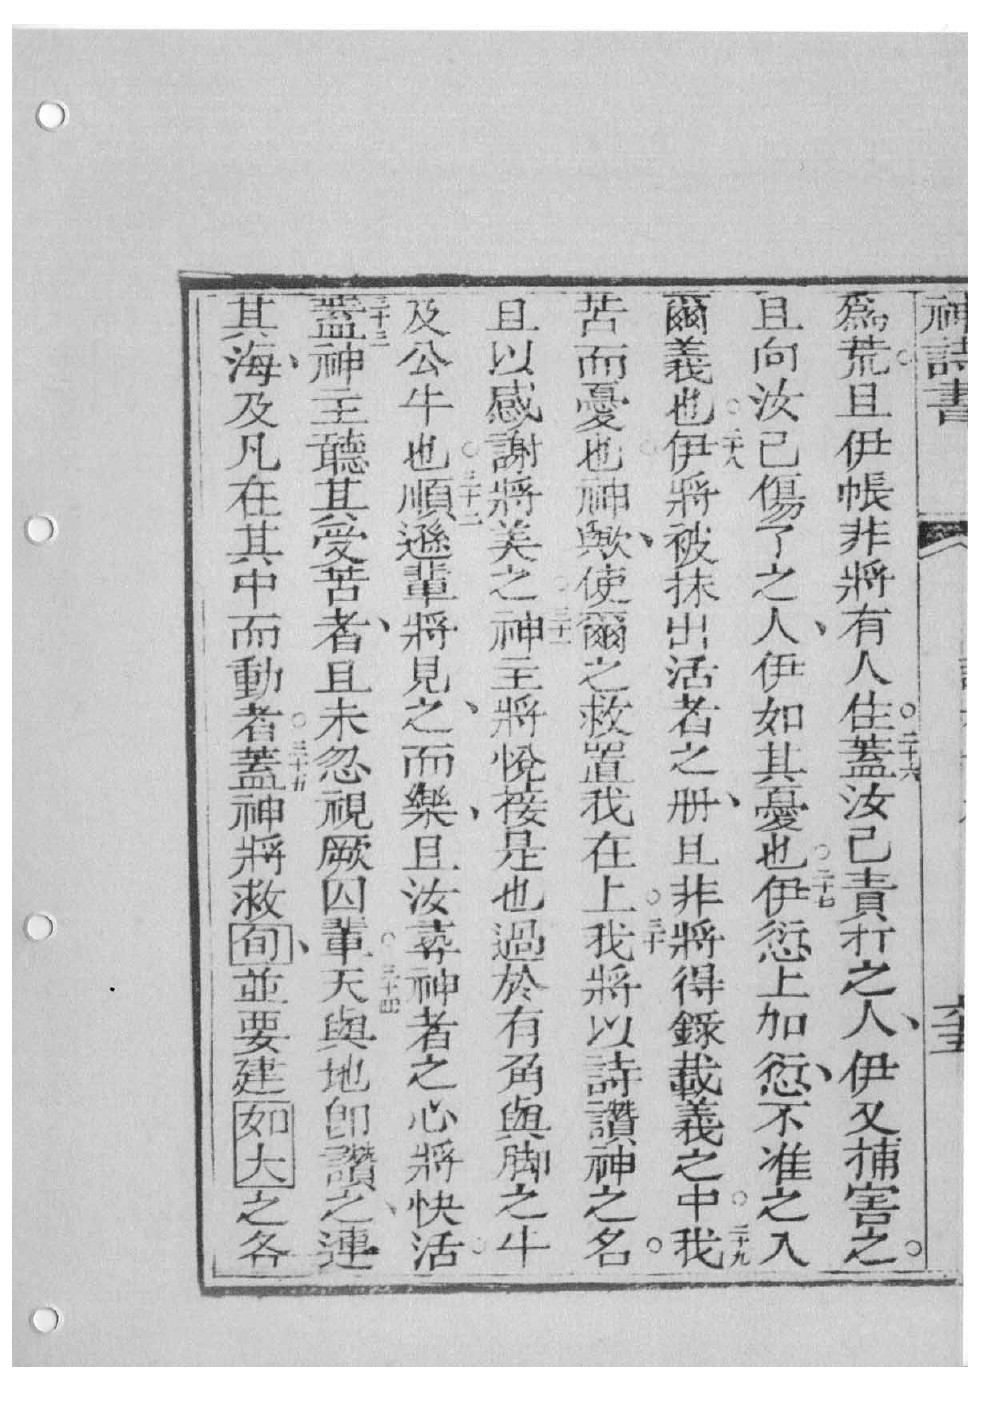 神詩書
六十五
爲荒且伊帳非將有人住。二十六蓋汝己責打之人、伊又捕害之。
且向汝已傷了之人、伊如其憂也。二十七伊愆上加愆、不准之入
爾義也。二十八伊將被抹出活者之册、且非將得錄載義之中。二十九我
苦而憂也。神歟、使爾之救置我在上。三十我將以詩讚神之名。
且以感謝將美之。三十一神主將悅接是也過於有角與脚之牛
及公牛也。三十二順遜輩將見之、而樂、且汝尋神者之心將快活。
三十三蓋神主聽其受苦者、且未忽視厥囚輩。三十四天與地卽讚之、連
其海、及凡在其中而動者。三十五蓋神將救旬、並要建如大之各